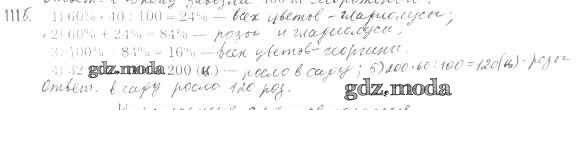 1116. 1) 60% · 40 : 100 = 24% – всех цветов - гладиолусы;
2) 60% + 24% = 84% – розы и гладиолусы;
3) 100% - 84% = 16% – всех цветов - георгины.
4) 32 gdz.moda 200 (ц) – росло в саду; 5) 200·60:100=120(ц)-розы
Ответ: в саду росло 120 роз.
gdz.moda